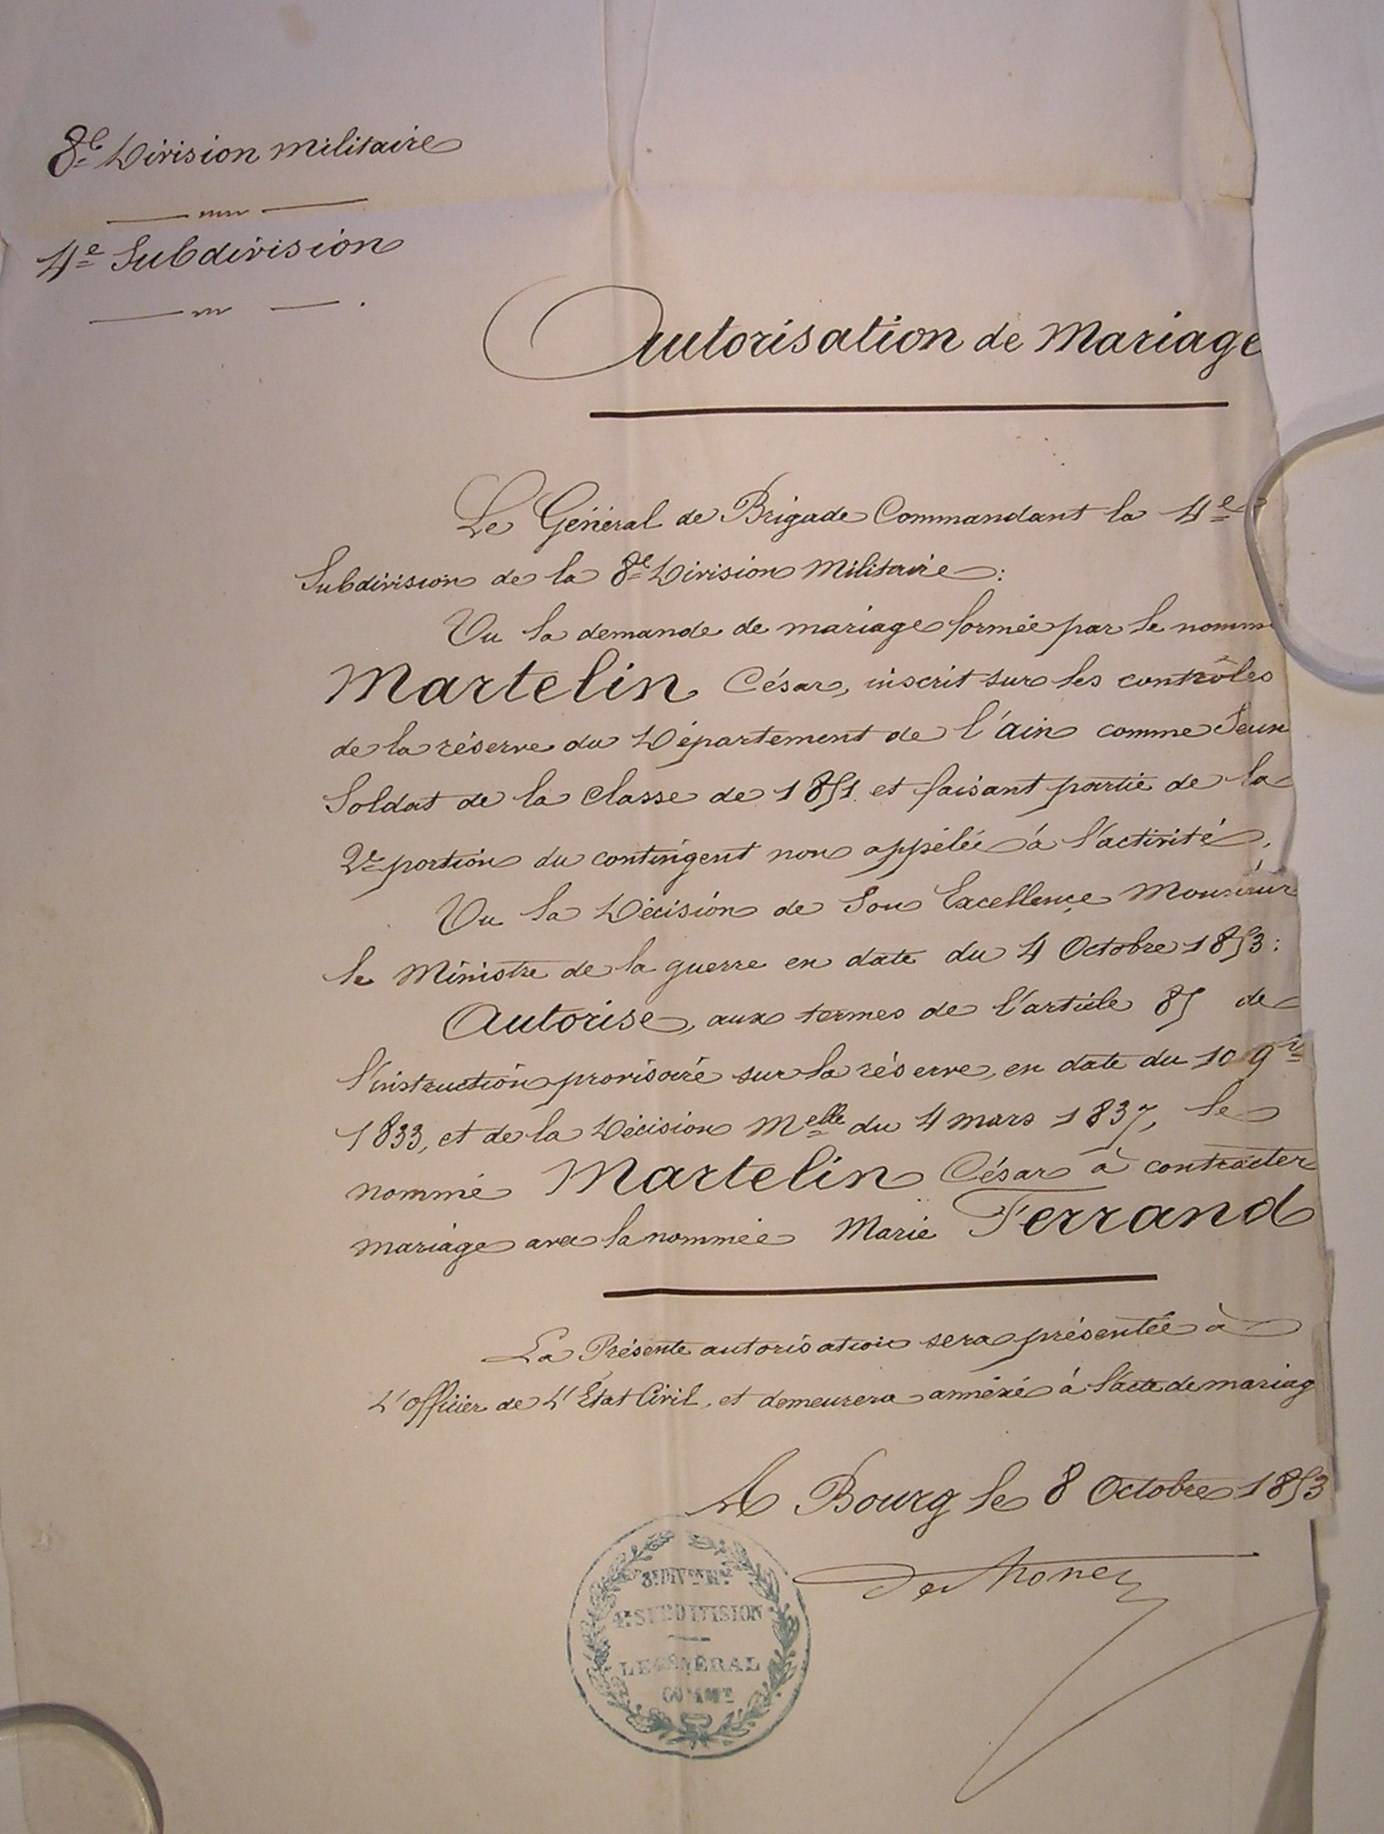 8e Division militaire
4e Subdivision
Autorisation de Mariage
Le Général de Brigade Commandant la 4e
Subdivision de la 8e Division Militaire :
Vu la demande de mariage formée par le nommé
Martelin César, inscrit sur les contrôles
de la réserve du Département de l'ain comme Jeun
Soldat de la classe de 1851 et faisant partie de la
2e portion du contingent non appélée à l'activité.
Vu la Décision de Son Excellence Monsieur
le Ministre de la guerre en date du 4 Octobre 1853 :
Autorise, aux termes de l'article 85 de
l'instruction provisoire sur la réserve, en date du 10 9
1833, et de la Décision Melle du 4 mars 1837, le
nommé Martelin César à contracter
mariage avec la nommée Marie Ferrand
La Présente autorisation sera présentée à
L'officier de L'Etat Civil, et demeurera annéxé à l'acte de mariag
A Bourg le 8 Octobre 1853
8e DIVon Mre
4e SUBDIVISION
LE GÉNÉRAL
COMMDT